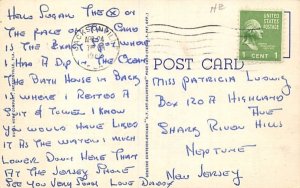 Hello Sugar. The X on
The Race or The Card
Is The Exact Spot where
I Had A Dip in The Ocean
The Bath House in Back
is where I Rented A
Suit & Towel I Know
You would Have Liked
It As The Water is Much
Lower Down Here Than
At The Jersey Shore
See You Very Soon Love Daddy
NB
POST CARD
1¢
Miss Patricia Ludwig
Box 120 A Highland
Ave
Shark River Hills
Neptune
New Jersey